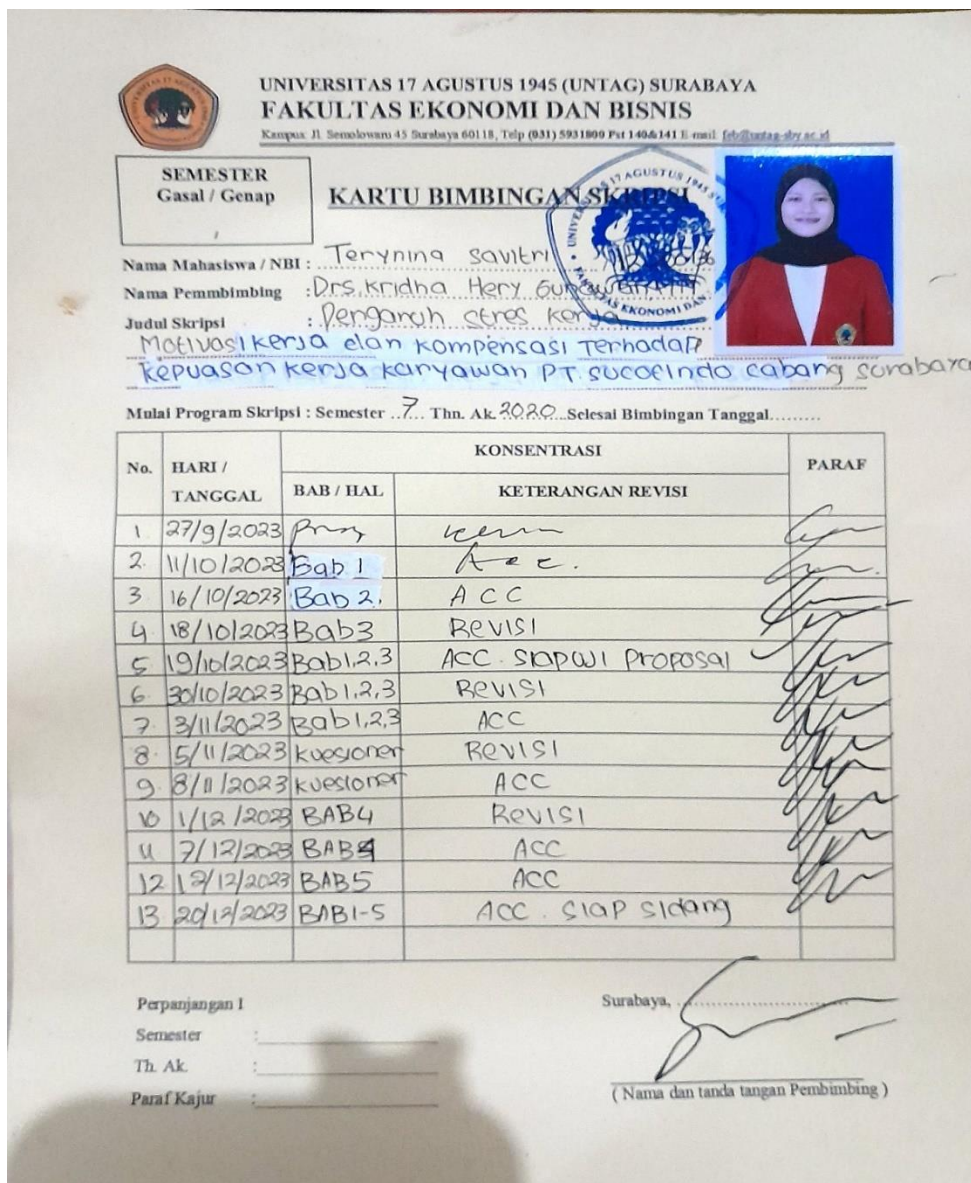 UNIVERSITAS 17 AGUSTUS 1945 (UNTAG) SURABAYA
FAKULTAS EKONOMI DAN BISNIS
Kampus: Jl. Semolowaru 45 Surabaya 60118, Telp (031) 5931800 Pst 140&141 E-mail: feb@untag-sby.ac.id
SEMESTER
Gasal / Genap
/
KARTU BIMBINGAN SKRIPSI
Nama Mahasiswa / NBI : Terynina Savitri
Nama Pemmbimbing : Drs. Kridha Hery
Judul Skripsi : Pengaruh stres kerja
Motivasi kerja dan kompensasi Terhadap
Kepuasan kerja karyawan PT. sucofindo cabang surabaya
Mulai Program Skripsi : Semester ..7.. Thn. Ak. 2020 ..Selesai Bimbingan Tanggal.........
No. HARI / TANGGAL KONSENTRASI PARAF
BAB / HAL KETERANGAN REVISI
1 27/9/2023
2. 11/10/2023 Bab 1 Acc.
3 16/10/2023 Bab 2. ACC
4 18/10/2023 Bab3 REVISI
5 19/10/2023 Bab1,2,3 ACC. SIAP UJI Proposal
6. 30/10/2023 Bab1,2,3 REVISI
7. 3/11/2023 Bab1,2,3 ACC
8. 5/11/2023 kuesioner REVISI
9. 8/11/2023 kuesioner ACC
10 1/12/2023 BAB4 REVISI
11 7/12/2023 BAB4 ACC
12 /12/2023 BAB5 ACC
13 20/12/2023 BAB1-5 ACC. SIAP Sidang
Perpanjangan I
Semester :
Th. Ak. :
Paraf Kajur :
Surabaya, ..............................
( Nama dan tanda tangan Pembimbing )